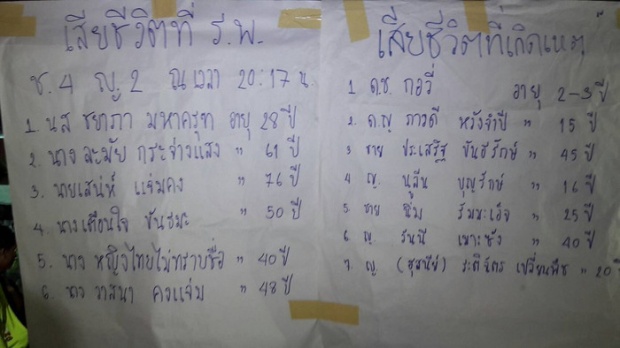 เสียชีวิตที่ ร.พ.
ช. 4 ญ. 2 ณ เวลา 20:17 น
1. นส ชยาภา มหาครุฑ อายุ 28 ปี
2. นาง มะมัย กระจ่างแสง " 61 ปี
3. นายเสน่ห์ แจ่มคง " 76 ปี
4. นางเตือนใจ ขันธมะ " 50 ปี
5. นาง หญิงไทยไม่ทราบชื่อ " 40 ปี
6. นาง วาสนา คงแจ่ม " 48 ปี
เสียชีวิตที่เกิดเหตุ
1 ด.ช. กอวี่ อายุ 2-3 ปี
2. ด.ญ ภาวดี หวังจำปี " 15 ปี
3 ชาย ประเสริฐ ขันธรักษ์ " 45 ปี
4 ญ. นูลีน บุญรักษ์ " 16 ปี
5 ชาย ซิม " 25 ปี
6 ญ. รันนี " 40 ปี
7. ญ ( ) เปลี่ยนพืช " 20 ปี